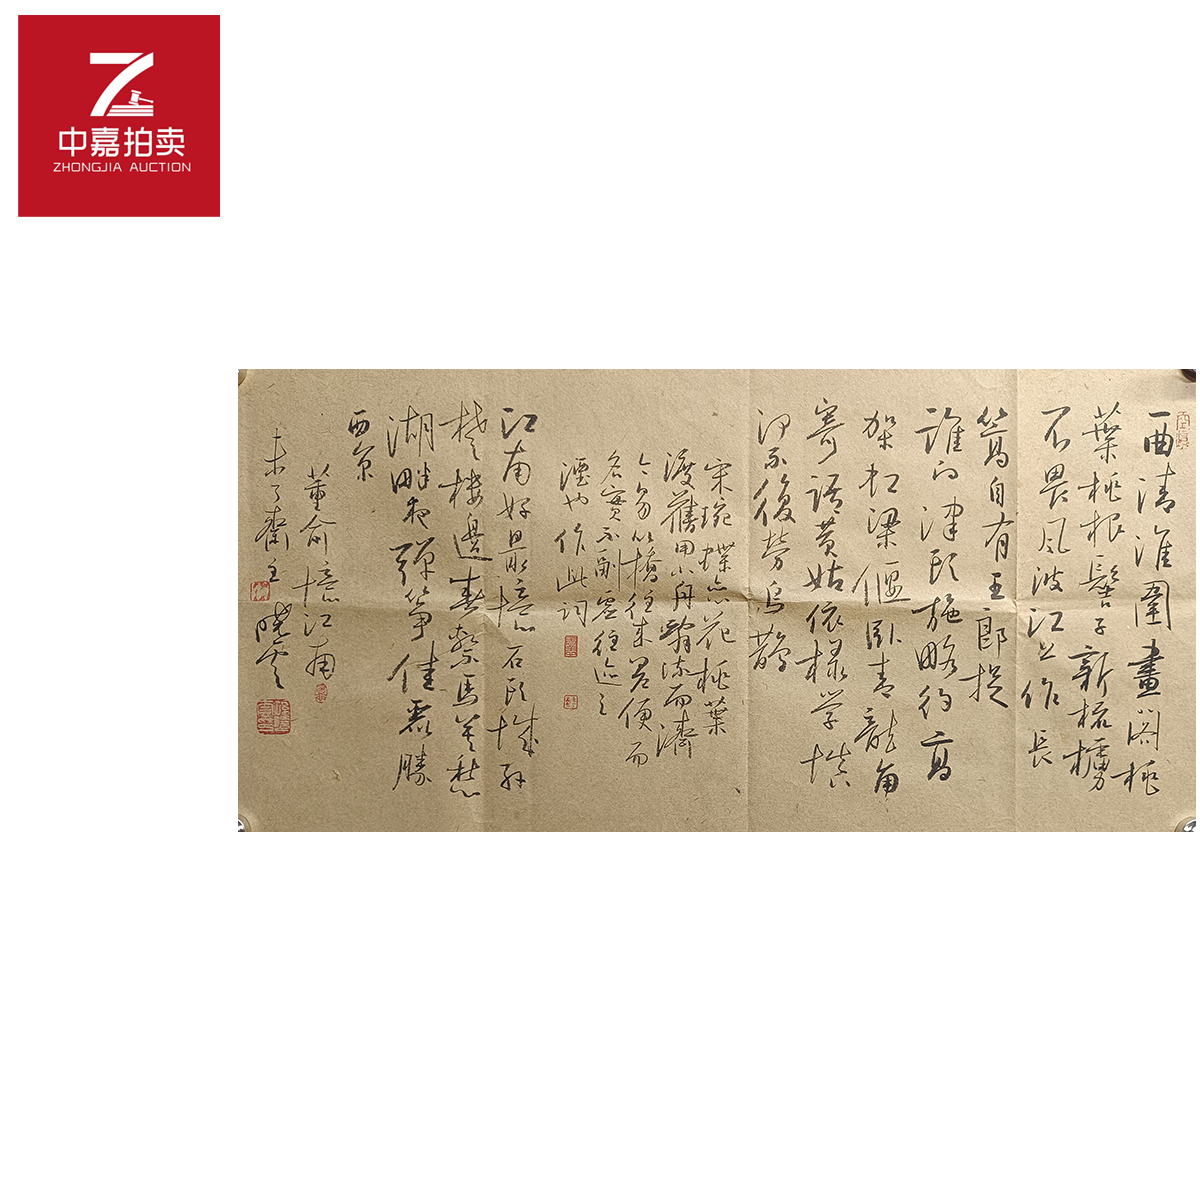 中嘉拍卖
ZHONGJIA AUCTION
一曲清淮圍畫閣桃
葉桃根髻子新梳掠
不畏風波江上作長
篙自有王郎捉
誰向津頭施略彴高
架虹梁偃臥青龍角
寄語黃姑依樣學填
河不復勞烏鵲
宋琬蝶戀花桃葉
渡舊用小舟亂流而濟
今易以橋往來君便而
名實不副虛往迹之
湮也作此詞
江南好最憶石頭城孫
楚樓邊春繫馬莫愁
湖畔夜彈箏佳麗勝
西京
董俞憶江南
未了齋主曉雲